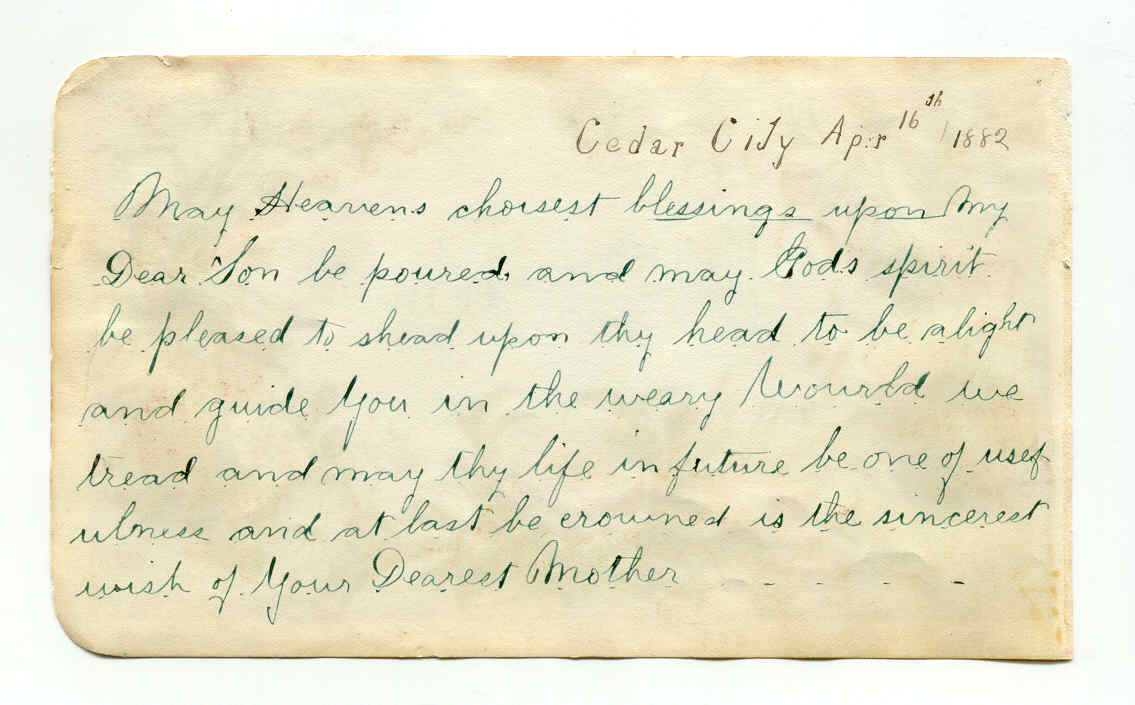 Cedar City Apr 16th 1882
May Heavens choisest blessings upon My
Dear Son be poured and may Gods spirit
be pleased to shead upon thy head to be alight
and guide You in the weary Wourld we
tread and may thy life in future be one of usef
ulness and at last be crowned is the sincerest
wish of Your Dearest Mother - - - - -